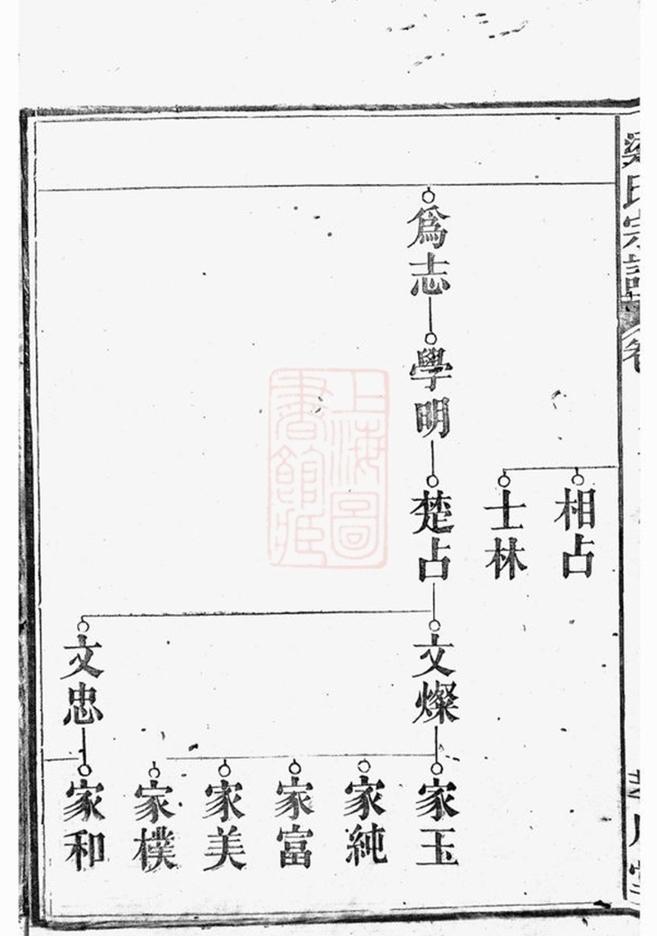 氏宗譜
卷
相占
士林
爲志
學明
楚占
文燦
文忠
家玉
家純
家富
家美
家樸
家和
上海圖
書館藏